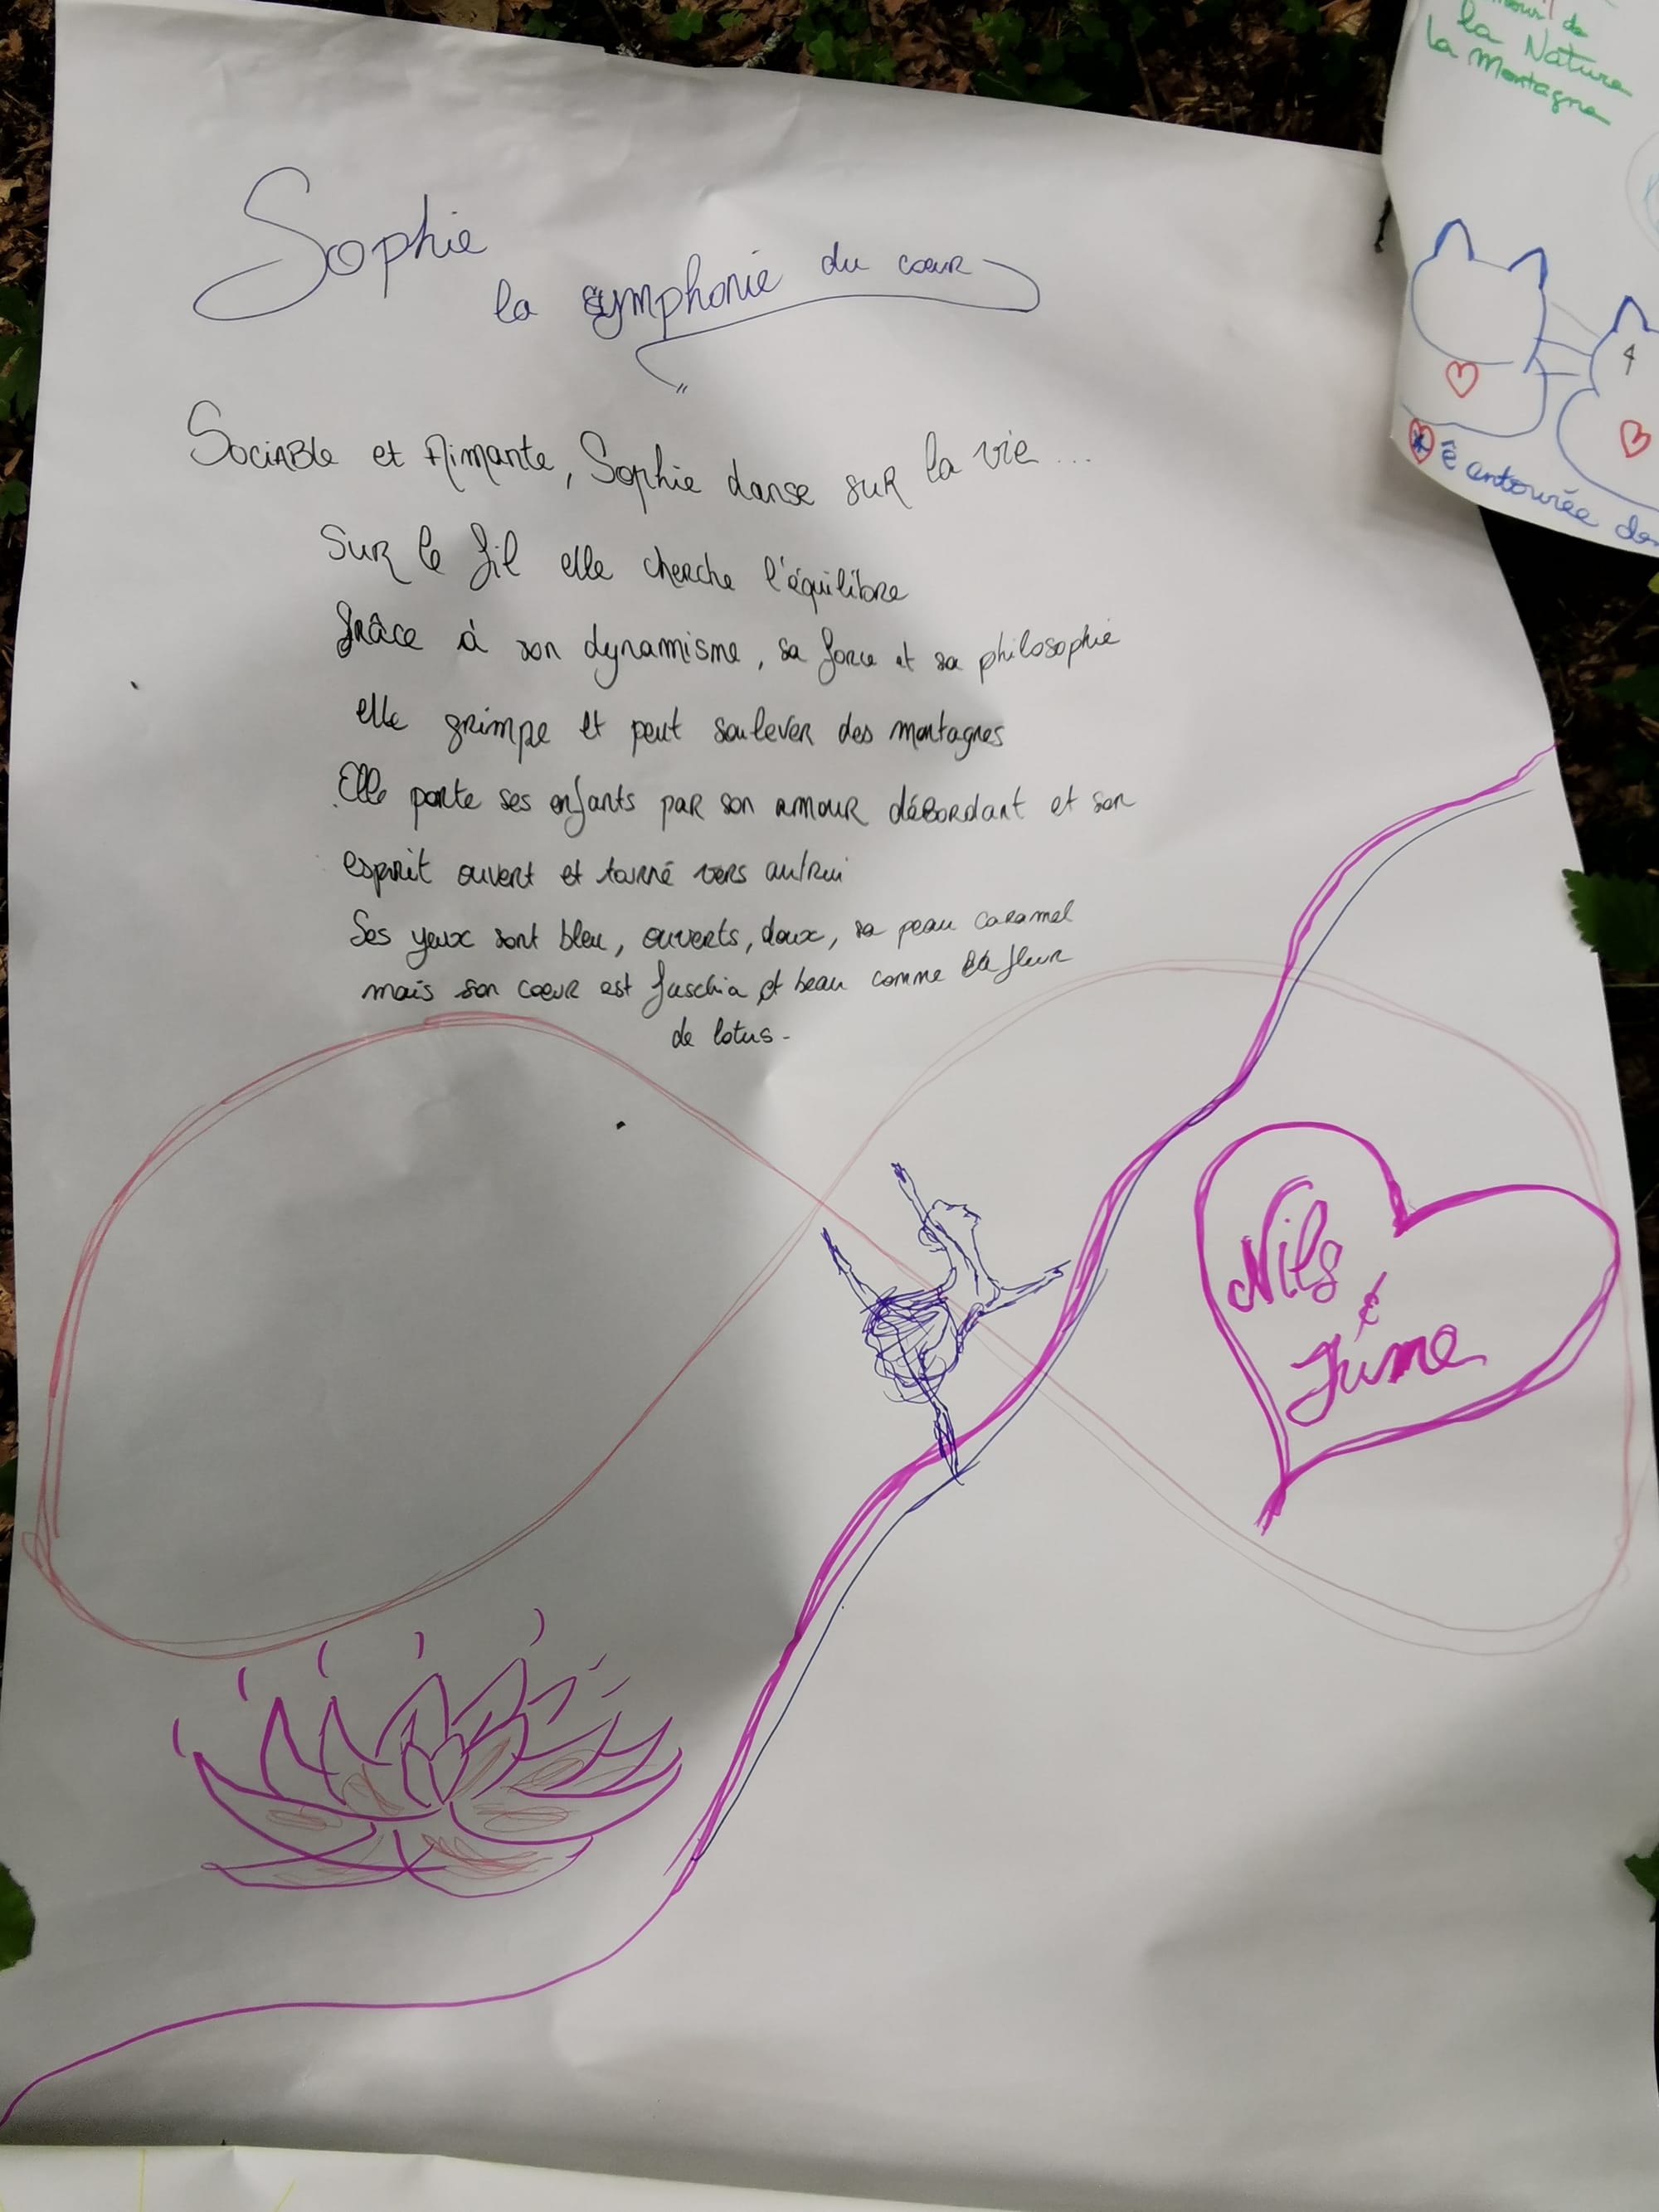 Sophie
la symphonie du cœur
Sociable et Aimante, Sophie danse sur la vie...
Sur le fil elle cherche l'équilibre
grâce à son dynamisme, sa force et sa philosophie
elle grimpe et peut soulever des montagnes
Elle porte ses enfants par son amour débordant et son
esprit ouvert et tourné vers autrui
Ses yeux sont bleu, ouverts, doux, sa peau caramel
mais son coeur est fuschia et beau comme la fleur
de lotus -
Nils
&
de
la Nature
la montagne
ê entourée